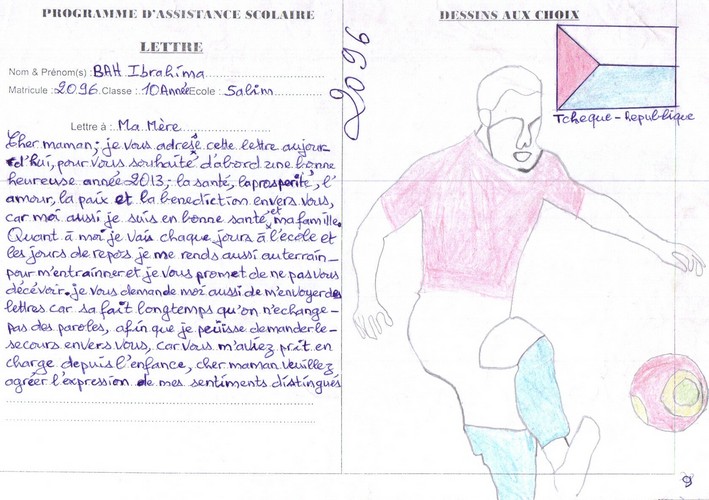 PROGRAMME D'ASSISTANCE SCOLAIRE
LETTRE
Nom & Prénom(s) : BAH Ibrahima
Matricule : 2096 Classe : 10 Année Ecole : Sabim
Lettre à : Ma Mère
Cher maman; je vous adresse cette lettre aujour-
d'hui, pour vous souhaité d'abord une bonne
heureuse année 2013; la santé, la prosperité, l'
amour, la paix et la benediction envers vous,
car moi aussi je suis en bonne santé, et ma famille.
Quant à moi je vais chaque jours à l'ecole et
les jours de repos je me rends aussi au terrain-
pour m'entraînner et je vous promet de ne pas vous
décévoir. je vous demande moi aussi de m'envoyer des
lettres car sa fait longtemps qu'on n'echange-
pas des paroles, afin que je peüisse demander le-
secours envers vous, car vous m'aviez prit en
charge depuis l'enfance, cher maman veuillez
agréer l'expression de mes sentiments distingués
2096
DESSINS AUX CHOIX
Tcheque-republique
9